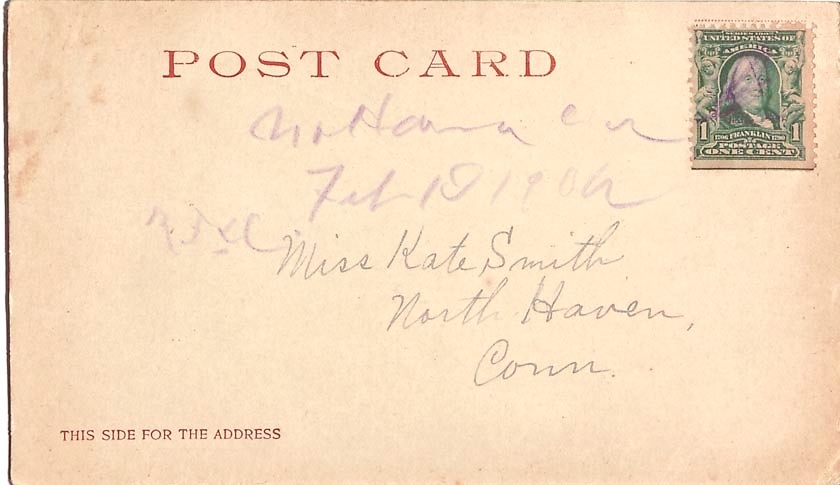 POST CARD
SERIES 1902
UNITED STATES OF
AMERICA
1 1706 FRANKLIN 1790 1
POSTAGE
ONE CENT
Feb 18 190
Miss Kate Smith
North Haven,
Conn.
THIS SIDE FOR THE ADDRESS